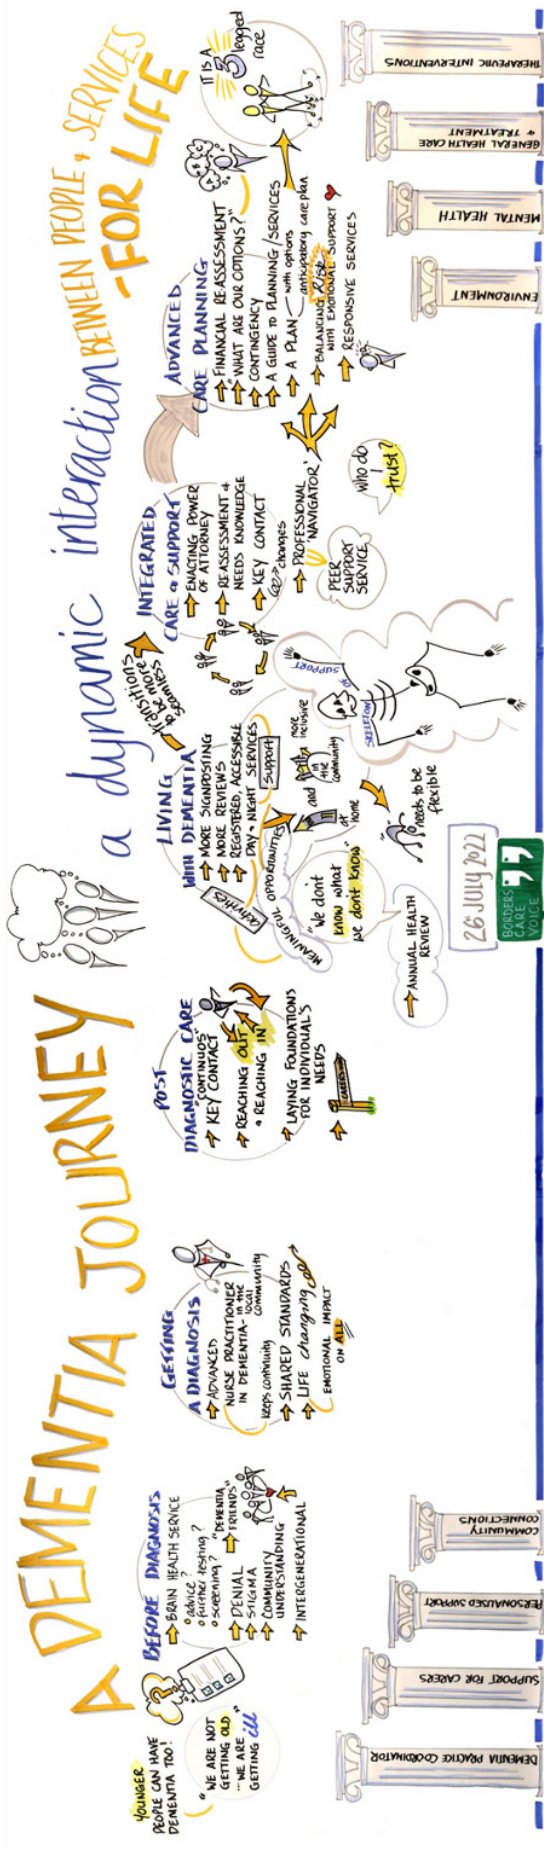 A DEMENTIA JOURNEY
a dynamic interaction BETWEEN PEOPLE & SERVICES
"FOR LIFE
YOUNGER
PEOPLE CAN HAVE
DEMENTIA TOO!
"WE ARE NOT
GETTING OLD
"WE ARE
GETTING ill"
?
BEFORE DIAGNOSIS
BRAIN HEALTH SERVICE
advice?
further testing?
screening?
"DEMENTIA
FRIENDS"
DENIAL
STIGMA
COMMUNITY
UNDERSTANDING
INTERGENERATIONAL
GETTING
A DIAGNOSIS
ADVANCED
NURSE PRACTITIONER
IN DEMENTIA - in the
local
community
keeps continuity
SHARED STANDARDS
LIFE changing
EMOTIONAL IMPACT
ON ALL
POST
DIAGNOSTIC CARE
"CONTINUOS"
KEY CONTACT
REACHING OUT
& REACHING IN
LAYING FOUNDATIONS
FOR INDIVIDUAL'S
NEEDS
CAREERS
LIVING
WITH DEMENTIA
MORE SIGNPOSTING
MORE REVIEWS
REGISTERED, ACCESSIBLE
DAY & NIGHT SERVICES
Support
activities
MEANINGFUL OPPORTUNITIES
at home
and
in the community
more inclusive
"We don't
know what
we dont know"
ANNUAL HEALTH
REVIEW
"needs to be
flexible
SKELETON OF SUPPORT
transitions
to be more
seamless
INTEGRATED
CARE & SUPPORT
ENACTING POWER
OF ATTORNEY
RE-ASSESSMENT &
NEEDS KNOWLEDGE
KEY CONTACT
changes
PROFESSIONAL
'NAVIGATOR'
PEER
SUPPORT
SERVICE
who do
I
trust?
ADVANCED
CARE PLANNING
FINANCIAL RE-ASSESSMENT
"WHAT ARE OUR OPTIONS?"
CONTINGENCY
A GUIDE TO PLANNING/SERVICES
A PLAN - with options
anticipatory care plan
BALANCING RISK
WITH EMOTIONAL SUPPORT
RESPONSIVE SERVICES
A B C
IT IS A
3 legged
race
26 July 2022
BORDERS
CARE
VOICE
DEMENTIA PRACTICE COORDINATOR
SUPPORT FOR CARERS
PERSONALISED SUPPORT
COMMUNITY
CONNECTIONS
ENVIRONMENT
MENTAL HEALTH
GENERAL HEALTH CARE
& TREATMENT
THERAPEUTIC INTERVENTIONS